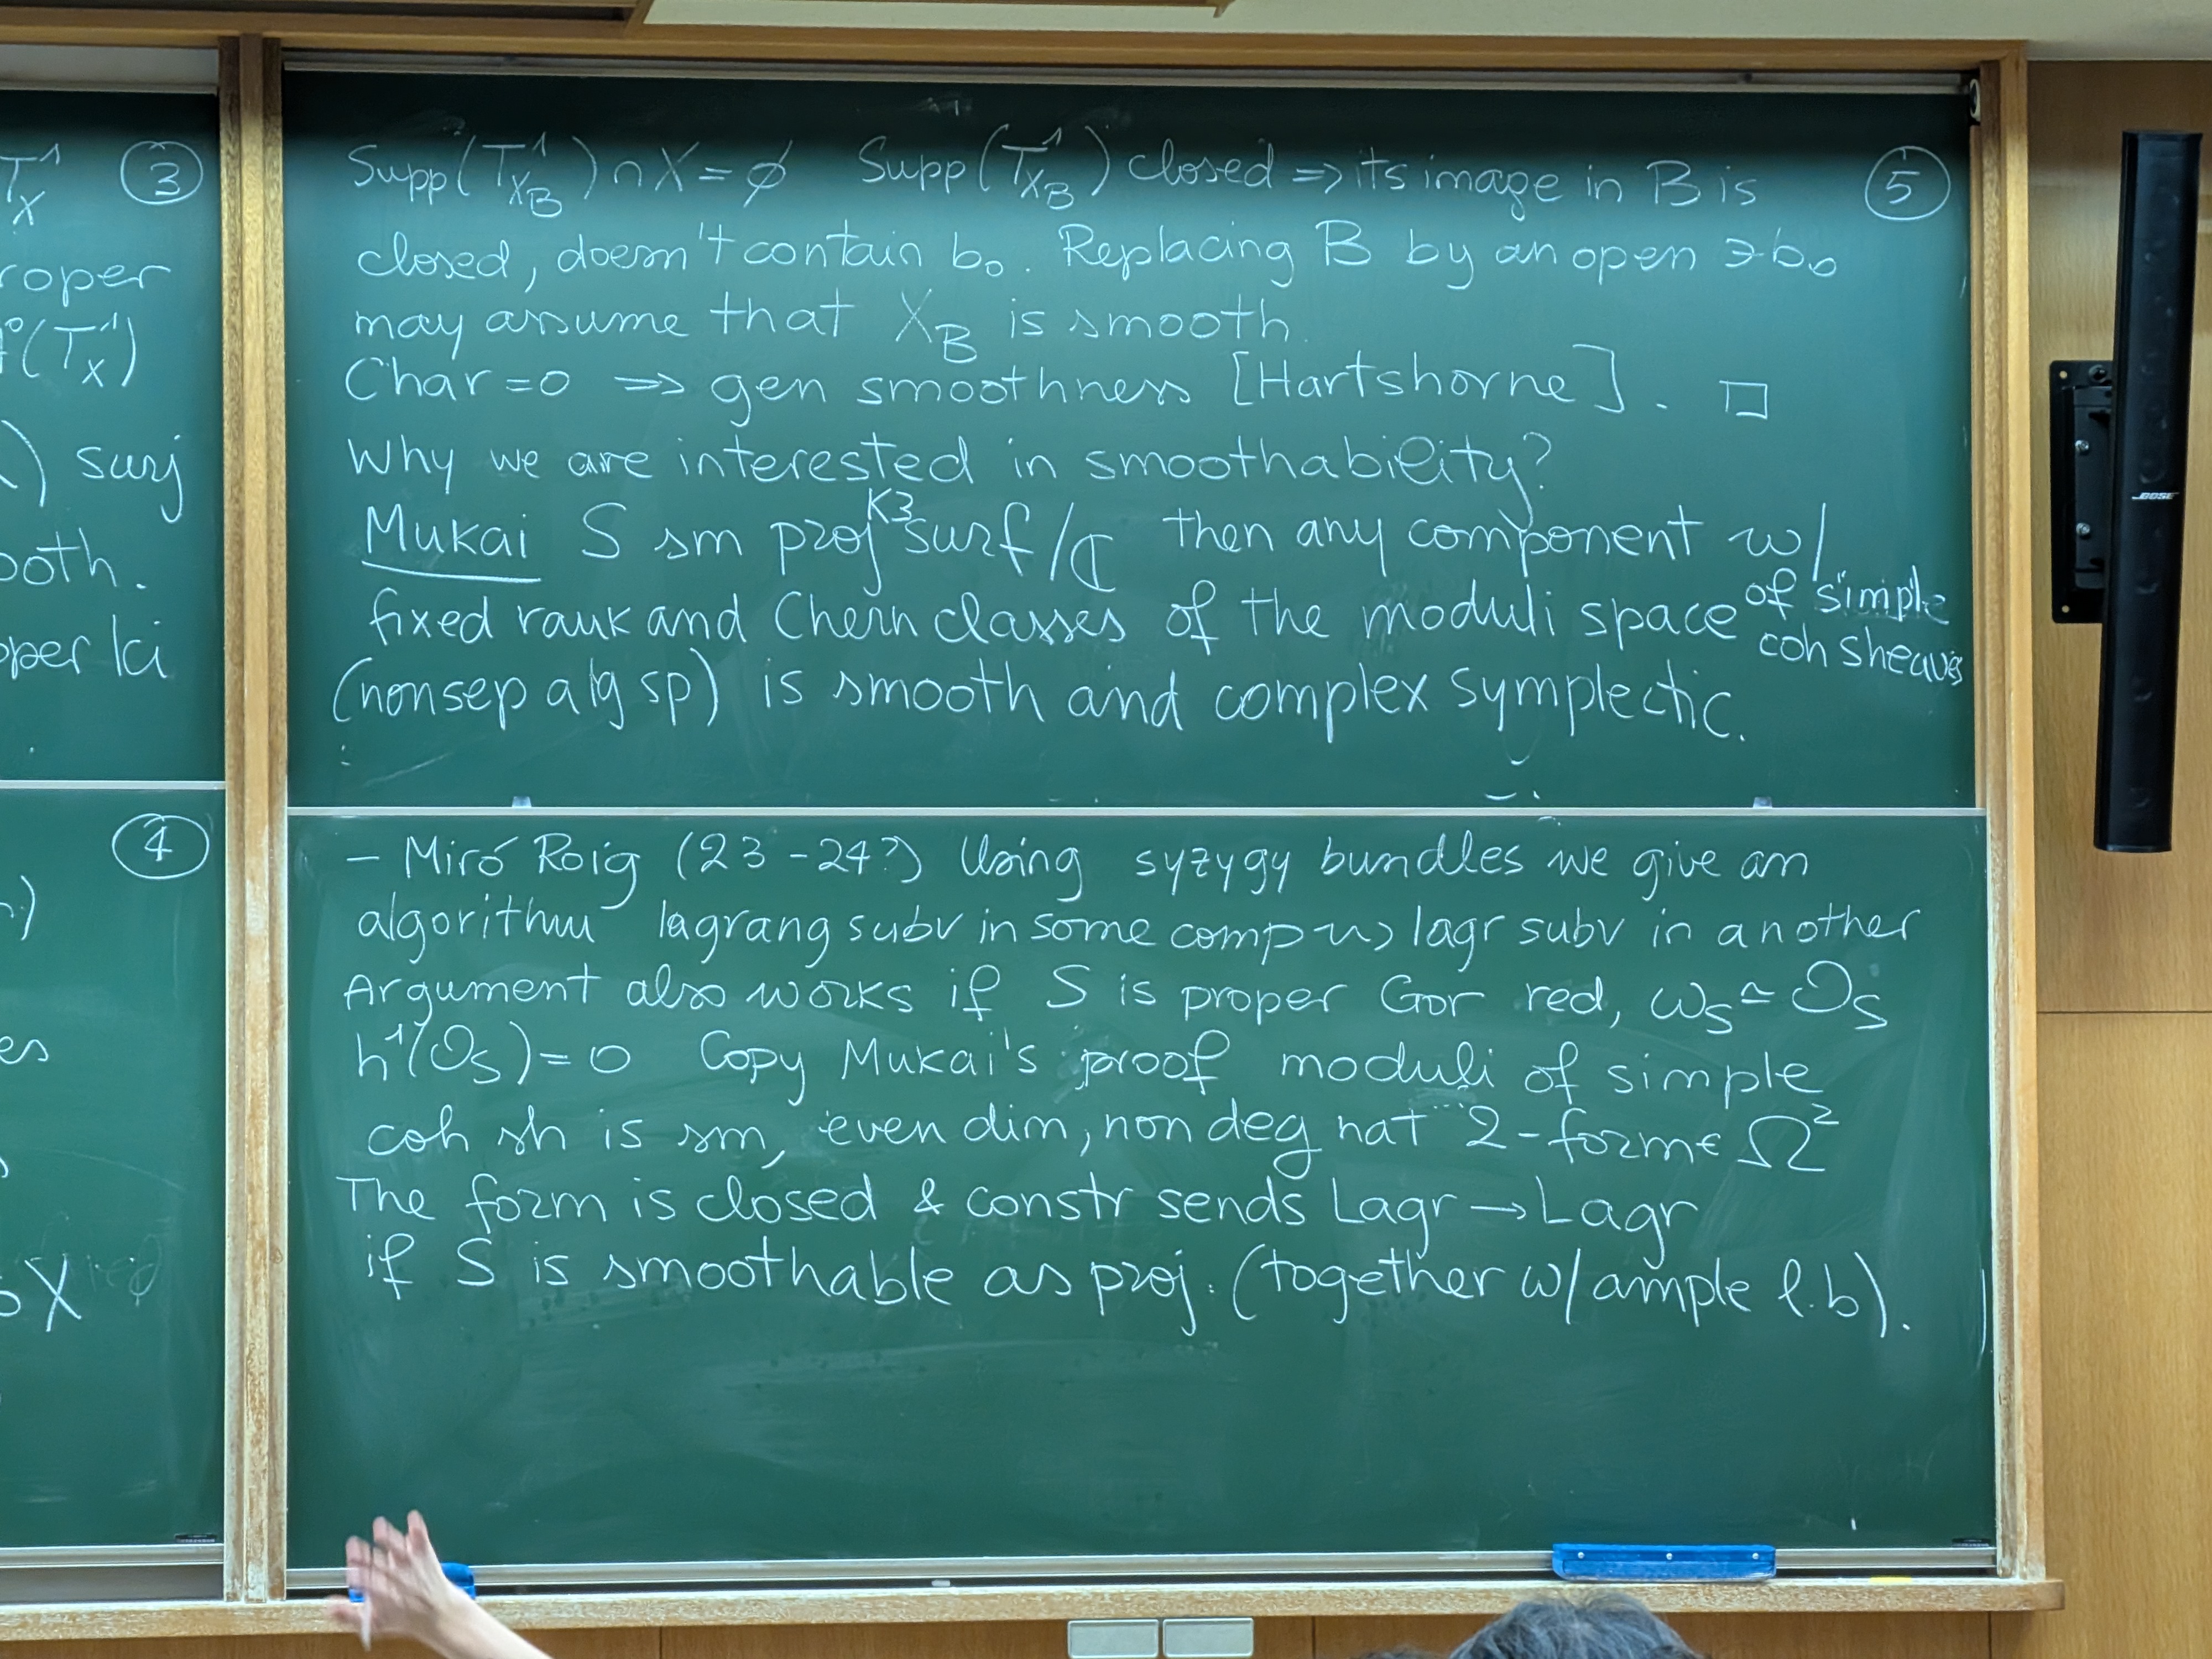 T¹_X ③
roper
(T¹_X)
) surj
ooth.
oper lci
④
es
X
Supp(T¹_{X_B}) ∩ X = ∅ Supp(T¹_{X_B}) closed ⇒ its image in B is ⑤
closed, doesn't contain b₀. Replacing B by an open ∋ b₀
may assume that X_B is smooth.
Char = 0 ⇒ gen smoothness [Hartshorne]. □
Why we are interested in smoothability?
Mukai S sm proj K3 surf/ℂ then any component w/
fixed rank and Chern classes of the moduli space of simple coh sheaves
(nonsep alg sp) is smooth and complex symplectic.
– Miró Roig (23-24?) Using syzygy bundles we give an
algorithm lagrang subv in some comp ⇝ lagr subv in another
Argument also works if S is proper Gor red, ω_S ≃ O_S
h¹(O_S) = 0 Copy Mukai's proof moduli of simple
coh sh is sm, even dim, non deg nat 2-form ∈ Ω²
The form is closed & constr sends Lagr → Lagr
if S is smoothable as proj. (together w/ ample l.b).
BOSE